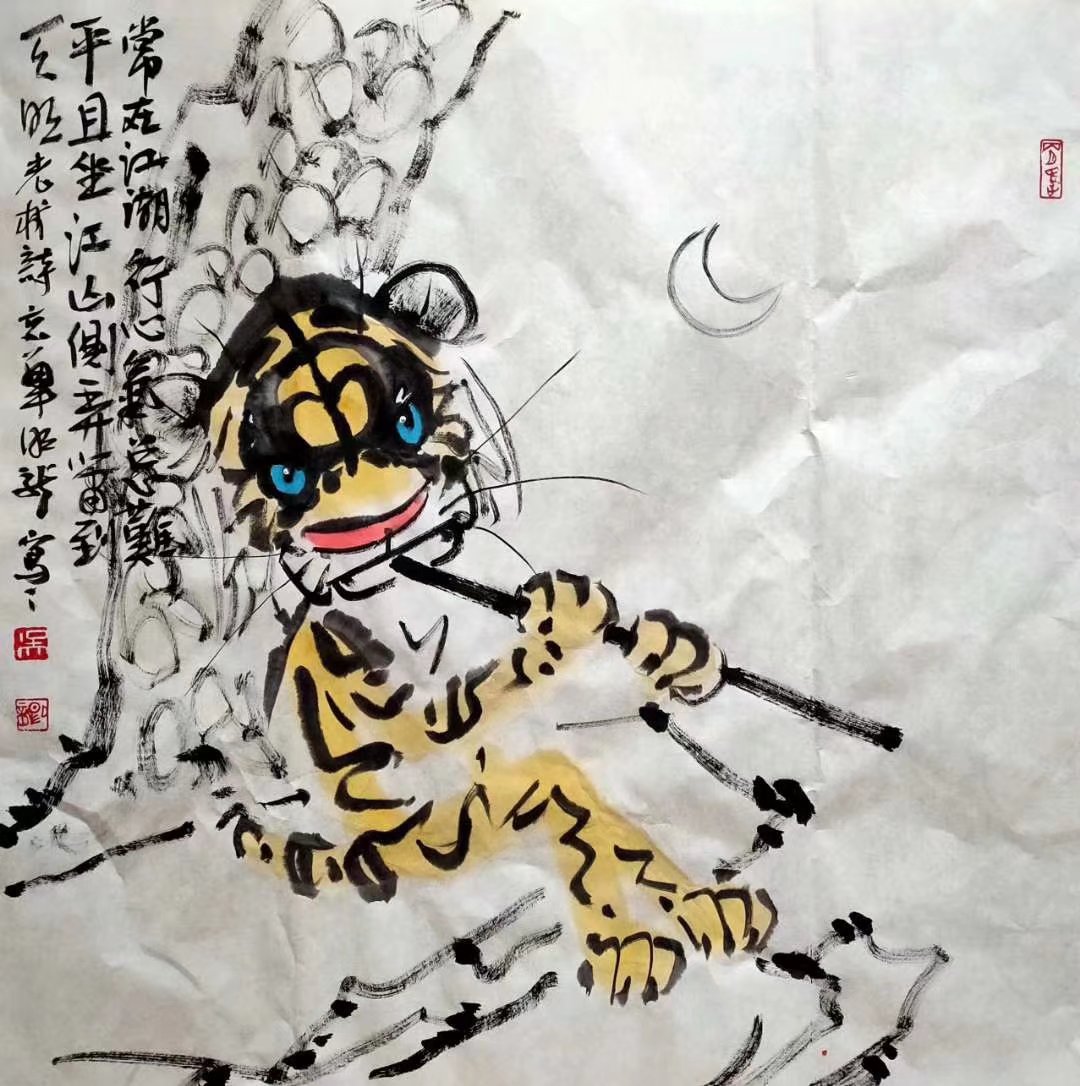 常在江湖行心氣总難
平且坐江山側弄笛到
天明老树詩寫